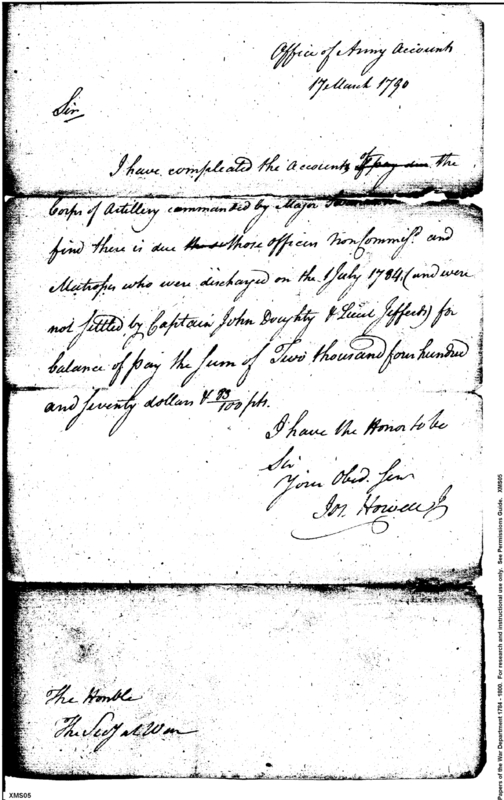 Office of Army Accounts
17 March 1790
Sir
I have compleated the Accounts of pay due the
Corps of Artillery commanded by Major
find there is due those officers Non Commisd. and
Matrosses who were discharged on the 1 July 1784. (and were
not settled by Captain John Doughty & Lieut Jeffers) for
balance of pay the sum of Two thousand four hundred
and seventy dollars & 83/100 pts.
I have the Honor to be
Sir
Your Obed. Serv
Jos. Howell Jr
The Honble
The Secy at War
XMS05
Papers of the War Department 1784 - 1800. For research and instructional use only. See Permissions Guide. XMS05